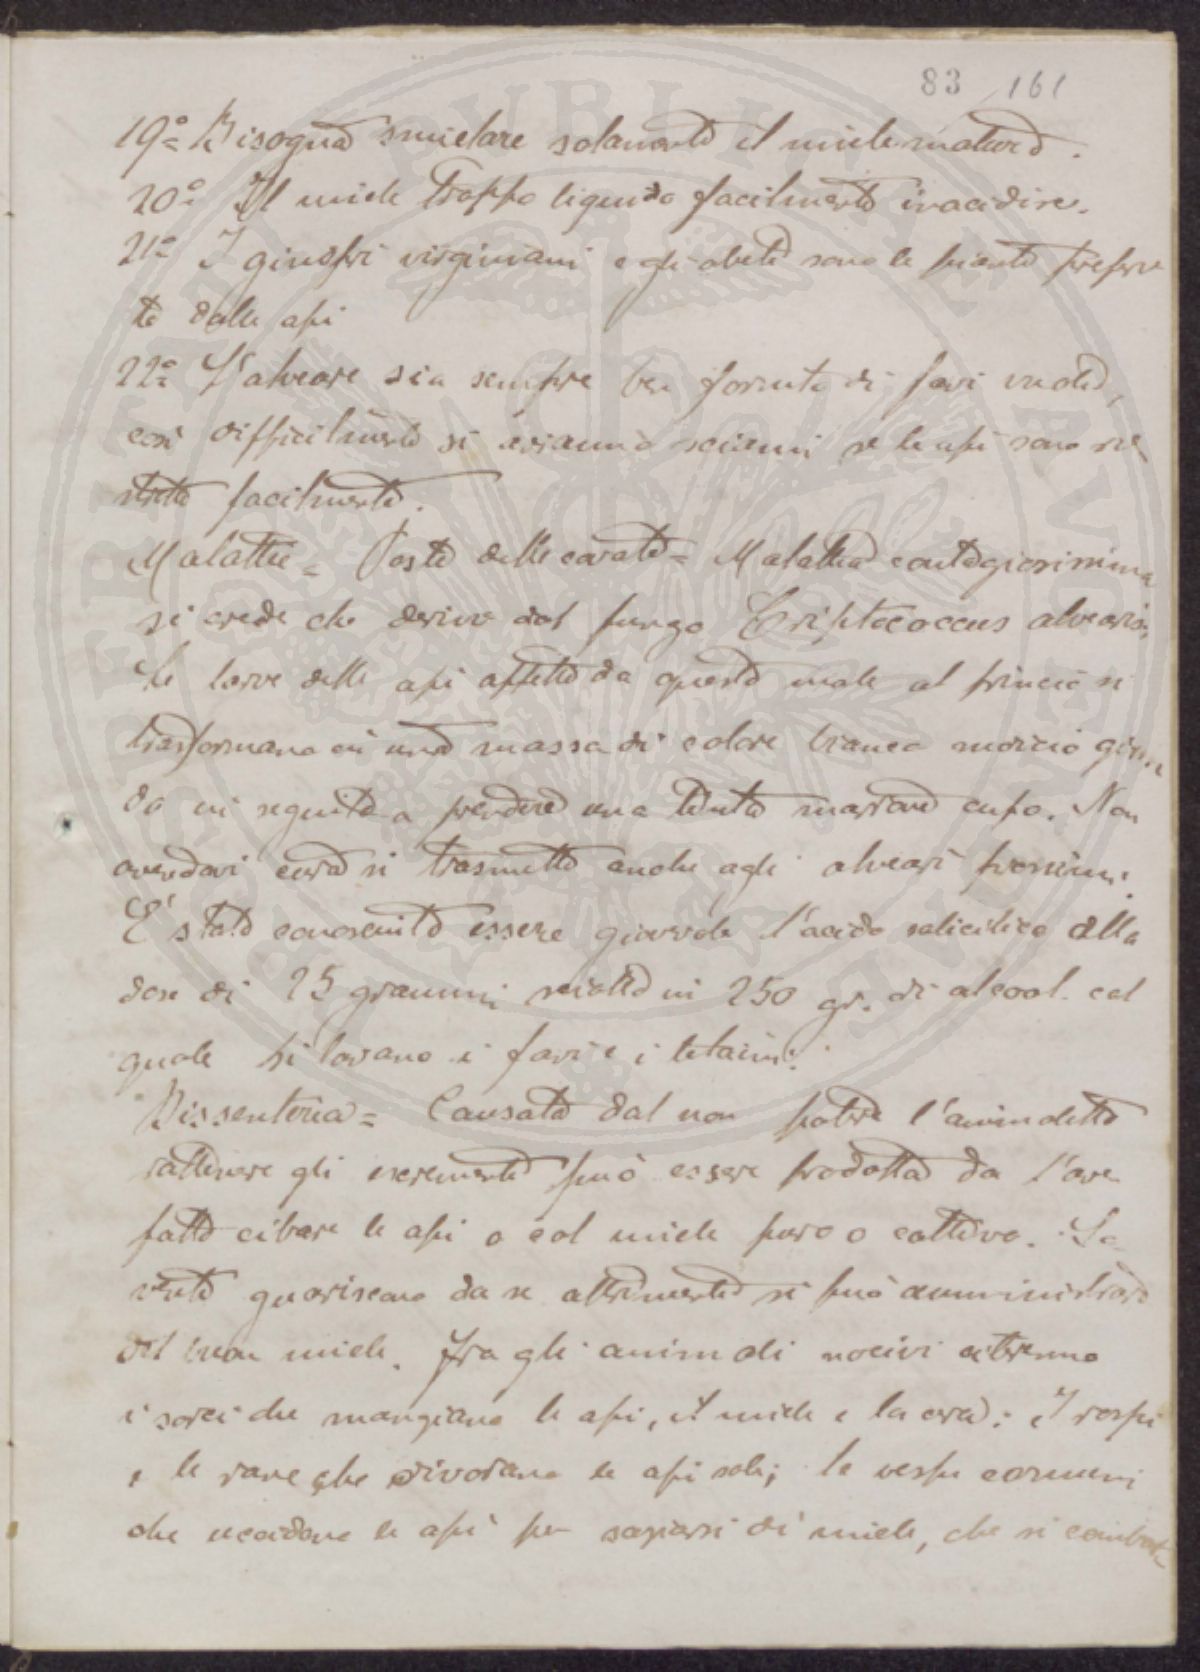 83 161
19º= Bisogna smielare solamente il miele maturo.
20º= Il miele troppo liquido facilmente inacidire.
21= I ginepri virginiani e gli abeti sono le piante preferi
te dalle api
22º= L'alveare sia sempre ben fornito di favi vuoti,
così difficilmente si avranno sciami se le api sono
facilmente.
Malattie = Peste delle covate = Malattia contagiosissima
si crede che derivi dal fungo Criptococcus alvearis.
Le larve delle api affette da questo male al princio si
trasformano in una massa di colore bianco
do in seguito a prendere una tinta marrone cupo. Non
avendovi cura si trasmette anche agli alveari prossimi.
E' stato conosciuto essere giovevole l'acido salicilico alla
dose di 25 grammi sciolto in 250 gr. di alcool. col
quale si lavano i favi e i telaini.
Dissenteria = Causata dal non potere l'animaletto
rattenere gli escrementi può essere prodotta da l'aver
fatto cibare le api o col miele puro o cattivo. So
vente guariscono da se altrimenti si può amministrare
del buon miele. Fra gli animali nocivi
i sorci che mangiano le api, il miele e la cera; I rospi
e le rane che divorano le api sole; le vespe comuni
che uccidono le api per saziarsi di miele, che si combat=